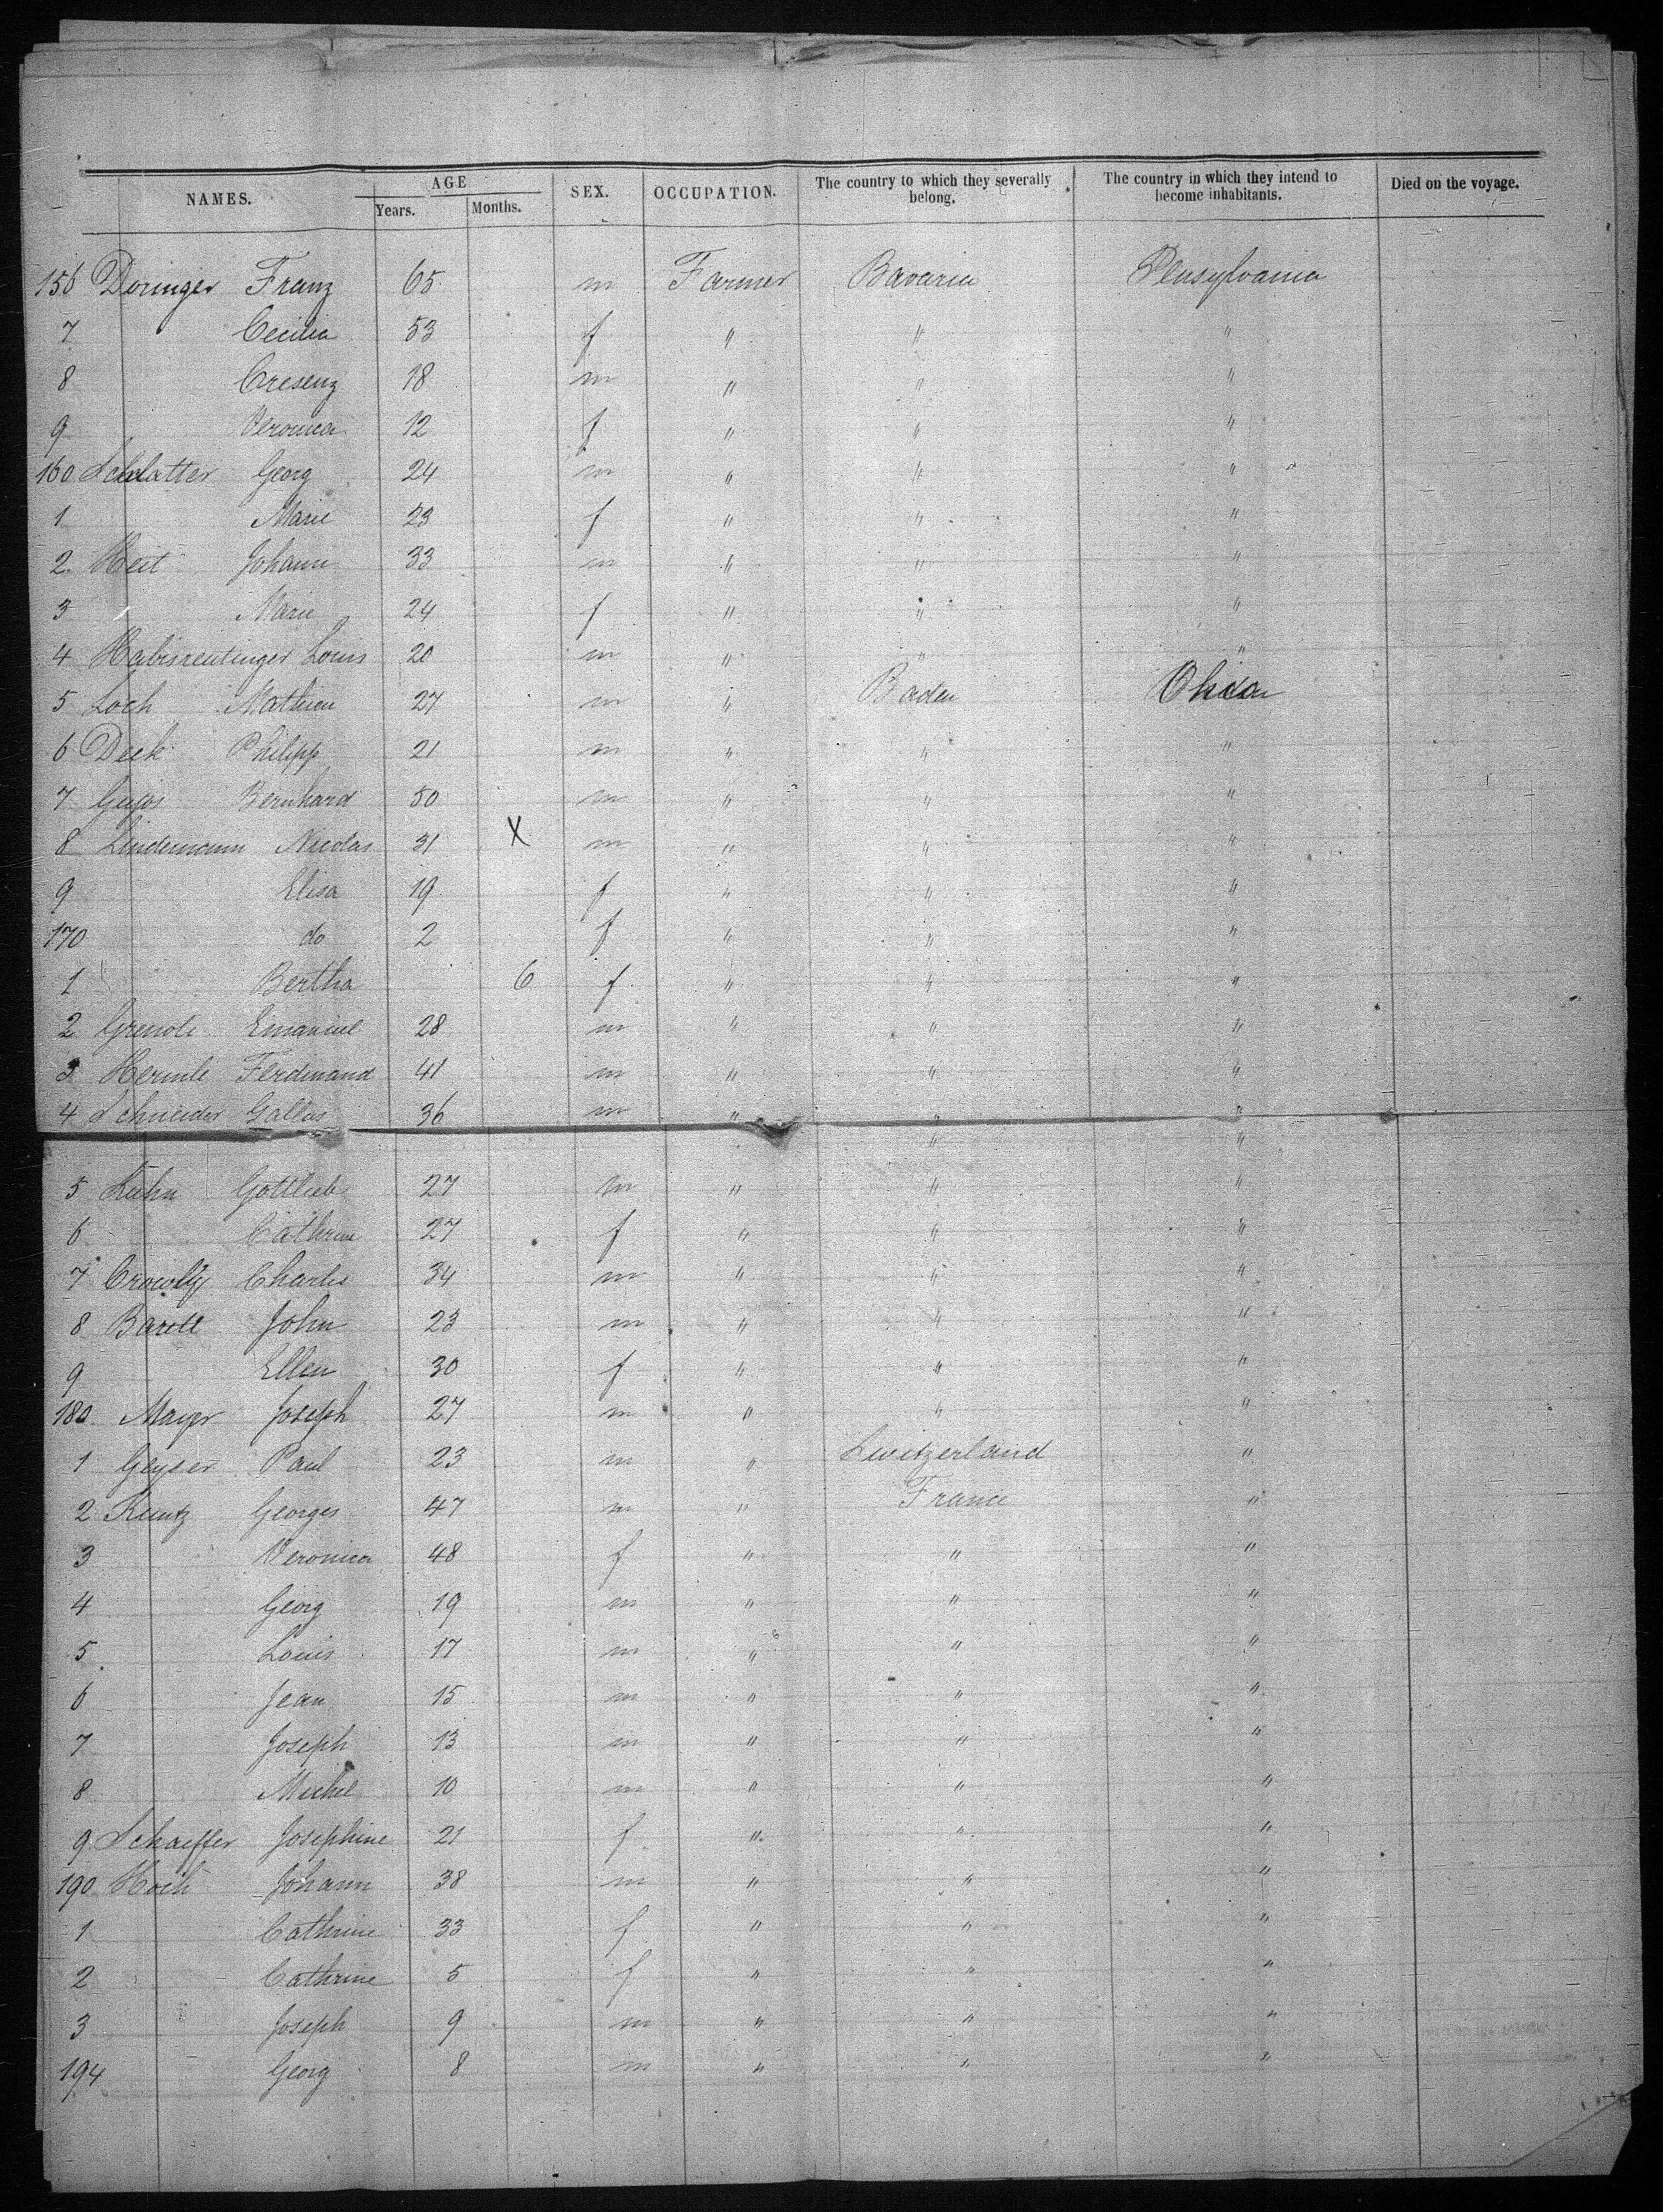 NAMES. AGE SEX. OCCUPATION. The country to which they severally belong. The country in which they intend to become inhabitants. Died on the voyage.
Years. Months.
156 Doringer Franz 65 m Farmer Bavaria Pensylvania
7 Cecilia 53 f " " "
8 Cresenz 18 m " " "
9 Veronica 12 f " " "
160 Schlatter Georg 24 m " " "
1 Marie 23 f " " "
2 Heit Johann 33 m " " "
3 Marie 24 f " " "
4 Habisreutinger Louis 20 m " " "
5 Loch Mathieu 27 m " Baden
6 Deck Philipp 21 m " " "
7 Bernhard 50 m " " "
8 Lindemann Nicolas 31 X m " " "
9 Elisa 19 f " " "
170 do 2 f " " "
1 Bertha 6 f " " "
2 Emanuel 28 m " " "
3 Hermle Ferdinand 41 m " " "
4 Schneider Gallus 36 m " " "
" "
5 Kuhn Gottlieb 27 m " " "
6 Cathrine 27 f " " "
7 Crowly Charles 34 m " " "
8 John 23 m " " "
9 Ellen 30 f " " "
180 Mayer Joseph 27 m " " "
1 Geyser Paul 23 m " Switzerland "
2 Kuntz Georges 47 m " France "
3 Veronica 48 f " " "
4 Georg 19 m " " "
5 Louis 17 m " " "
6 Jean 15 m " " "
7 Joseph 13 m " " "
8 Michel 10 m " " "
9 Schaeffer Josephine 21 f " " "
190 Hoch Johann 38 m " " "
1 Cathrine 33 f " " "
2 Cathrine 5 f " " "
3 Joseph 9 m " " "
194 Georg 8 m " " "